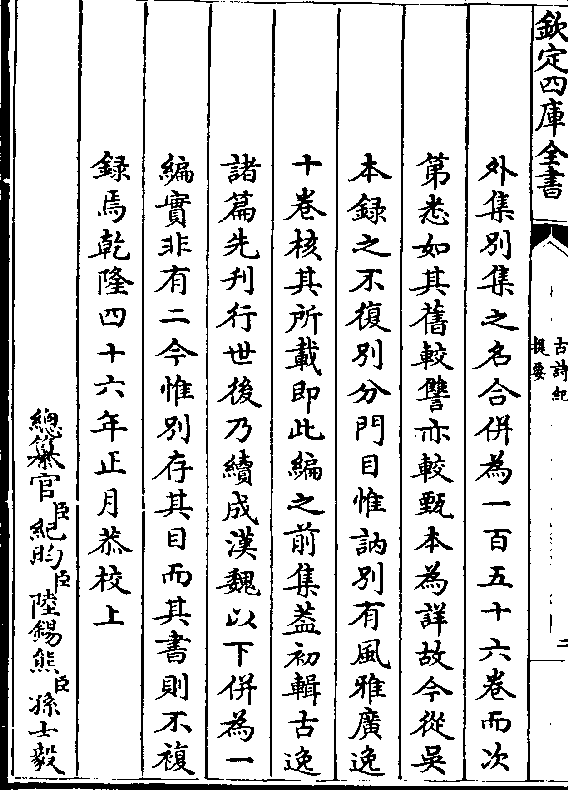 欽定四庫全書
古詩紀
提要
二
外集別集之名合併為一百五十六巻而次
第悉如其舊較讐亦較甄本為詳故今從吳
本録之不復別分門目惟訥別有風雅廣逸
十巻核其所載即此編之前集葢初輯古逸
諸篇先刋行世後乃續成漢魏以下併為一
編實非有二今惟別存其目而其書則不複
録焉乾隆四十六年正月恭校上
總纂官臣紀昀臣陸錫熊臣孫士毅